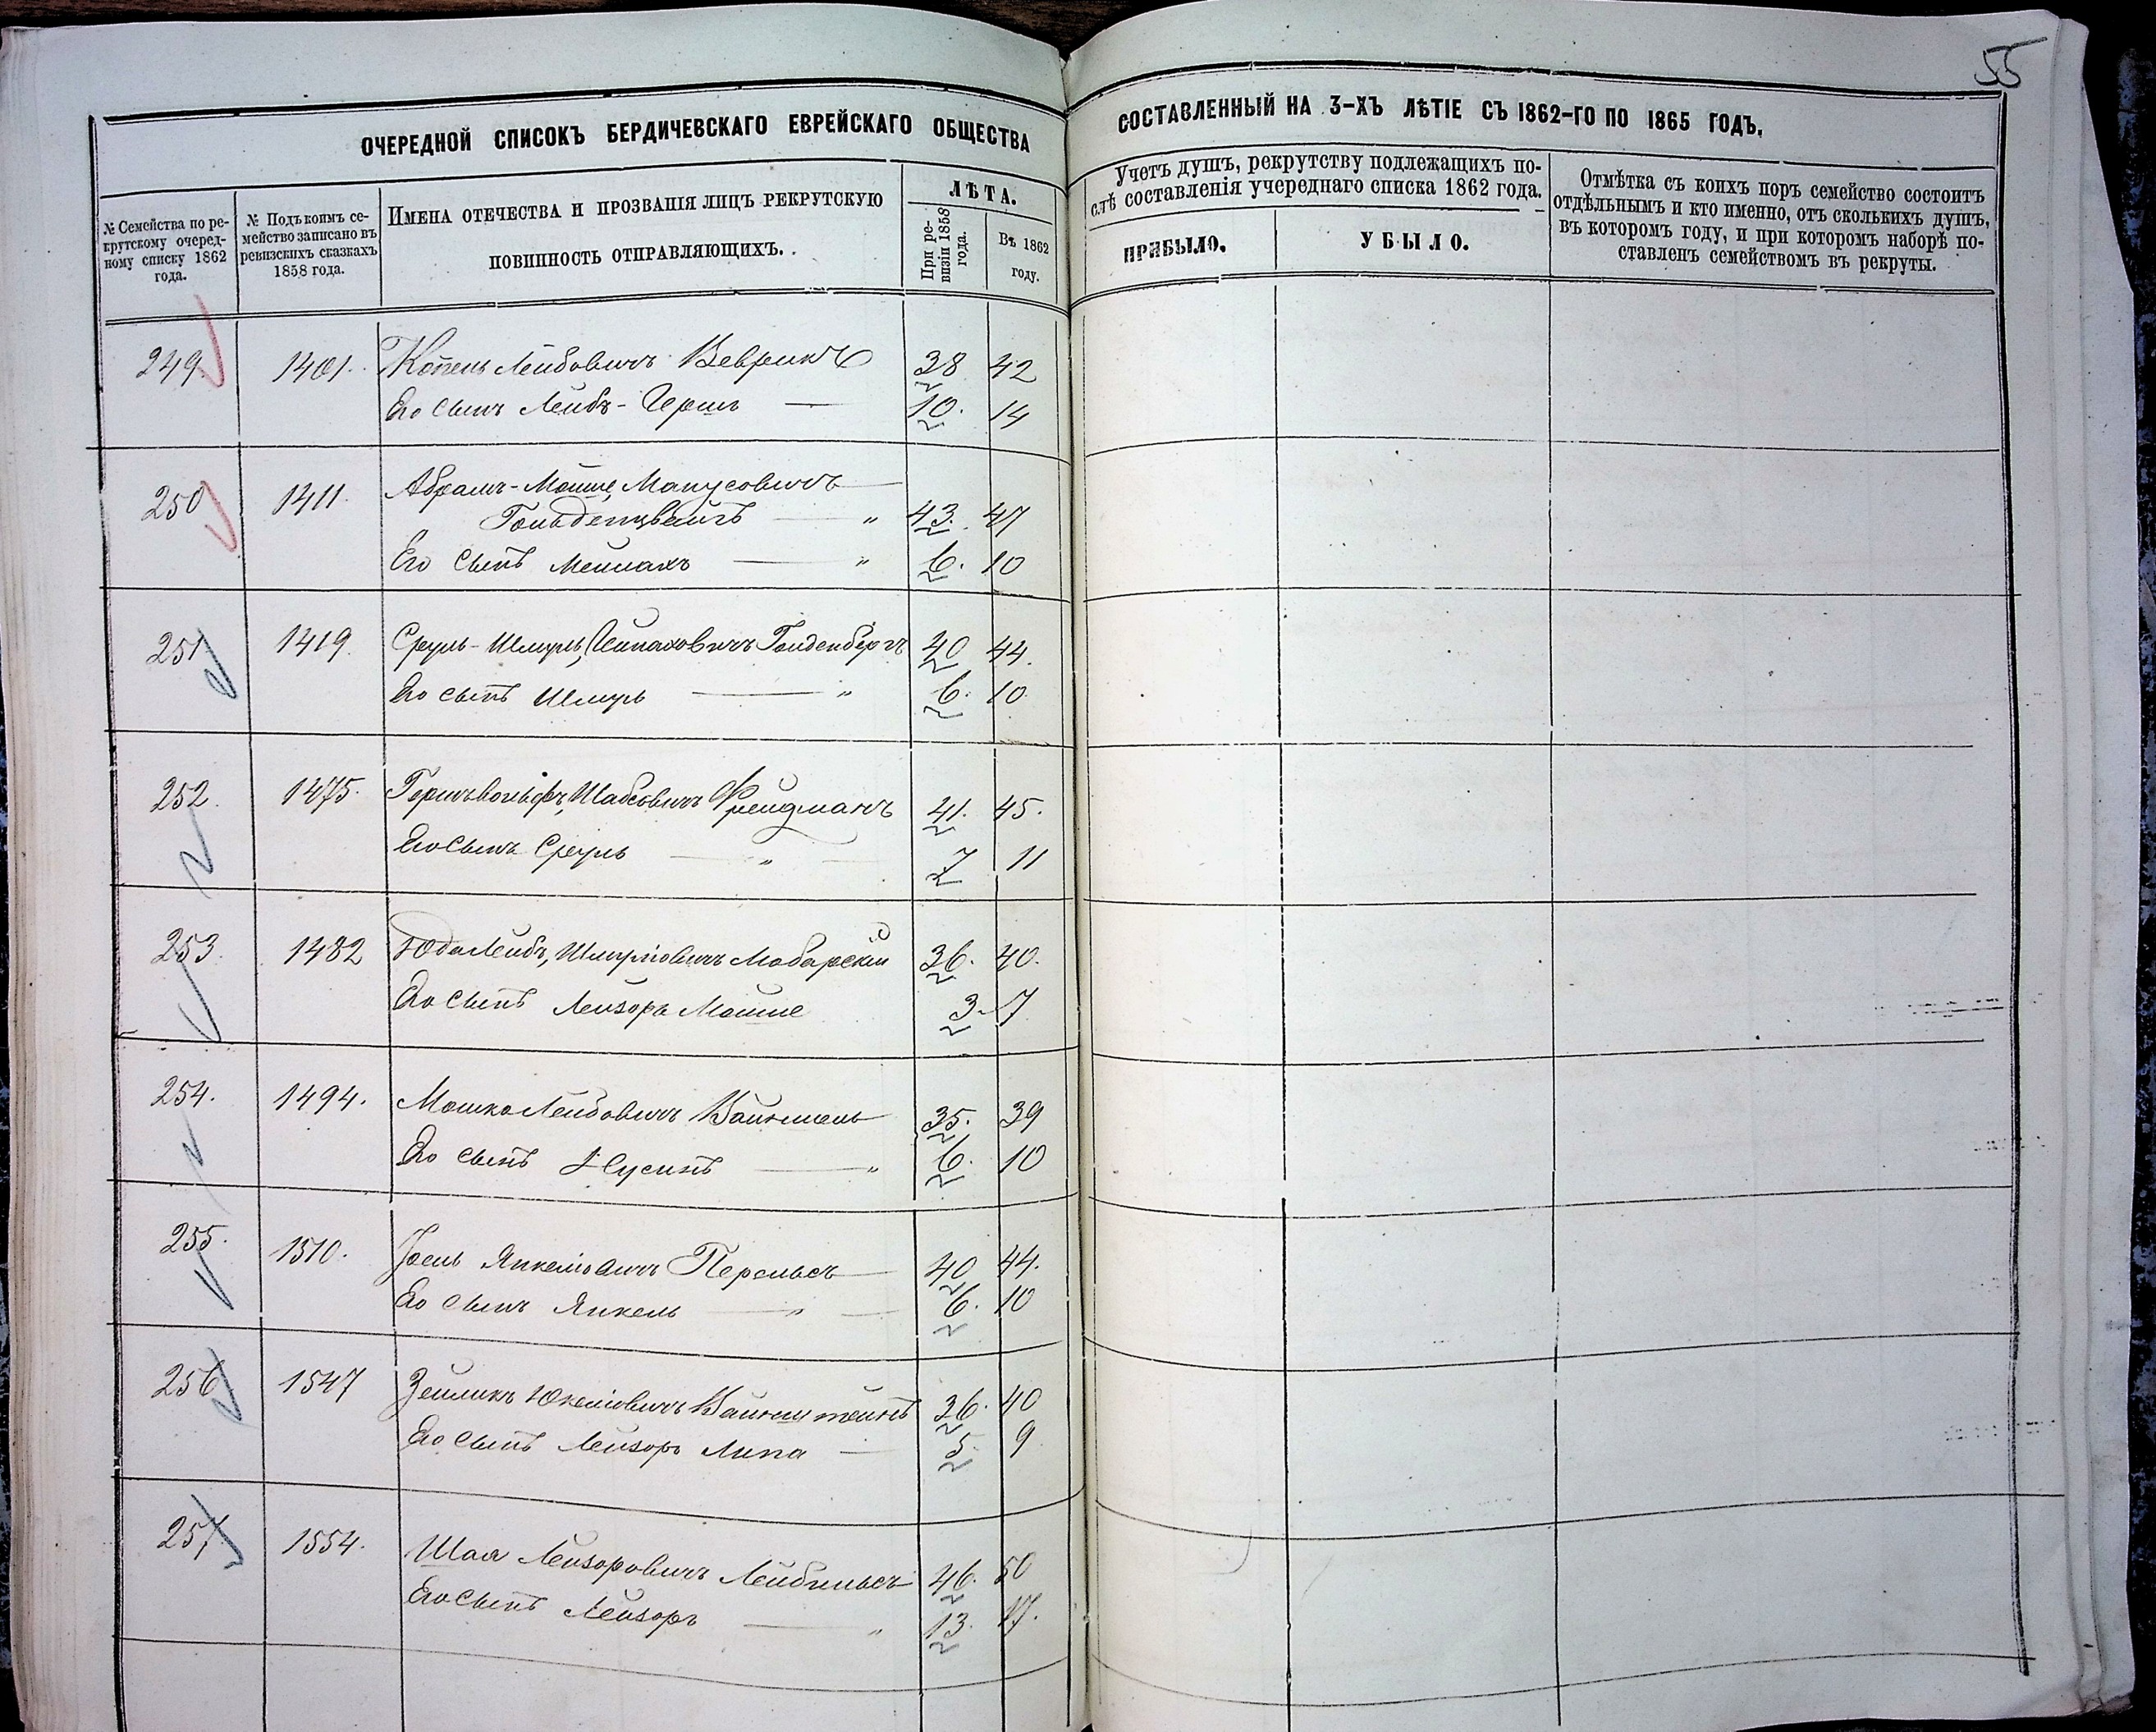 55
ОЧЕРЕДНОЙ СПИСОКЪ БЕРДИЧЕВСКАГО ЕВРЕЙСКАГО ОБЩЕСТВА
СОСТАВЛЕННЫЙ НА 3-ХЪ ЛѢТІЕ СЪ 1862-ГО ПО 1865 ГОДЪ,
№ Семейства по ре-
крутскому очеред-
ному списку 1862
года.
№ Подъ коимъ се-
мейство записано въ
ревизскихъ сказкахъ
1858 года.
ИМЕНА ОТЕЧЕСТВА И ПРОЗВАНІЯ ЛИЦЪ РЕКРУТСКУЮ
ПОВИННОСТЬ ОТПРАВЛЯЮЩИХЪ.
ЛѢТА.
При ре-
визіи 1858
года.
Въ 1862
году.
Учетъ душъ, рекрутству подлежащихъ по-
слѣ составленія учереднаго списка 1862 года.
ПРИБЫЛО.
УБЫЛО.
Отмѣтка съ коихъ поръ семейство состоитъ
отдѣльнымъ и кто именно, отъ сколькихъ душъ,
въ котором году, и при котором наборѣ по-
ставленъ семействомъ въ рекруты.
249 1401. Копель Лейбовичъ Веврикъ 38 42
Его сынъ Лейбъ-Гершъ — 10. 14
250 1411. Абрамъ-Мойше, Манусовичъ
Гольденцвейгъ — " 43. 47
Его сынъ Мейлахъ — " 6. 10
251 1419 Сруль-Шмуль, Гейнаховичъ Голденбергъ 40 44.
Его сынъ Шмуль — " 6. 10
252. 1475. Гершъ Вольфъ, Шабсовичъ Фрейдманъ 41. 45.
Его сынъ Сруль — " — 7 11
253. 1482 Юда Лейбъ, Шмулiовичъ Мабарскій 36. 40.
Его сынъ Лейзоръ Мойше 3. 7
254. 1494. Мошко Лейбовичъ 35. 39
Его сынъ Нусинъ — " 6. 10
255. 1510. Іосль Янкеліовичъ Перельсъ 40 44.
Его сынъ Янкель — " — 6. 10
256 1547 Зейликъ Юкеліовичъ Вайнштейнъ 36. 40
Его сынъ Лейзоръ Липа — 5. 9
257 1554. Шая Лейзоровичъ Лейбгельсъ 46. 50
Его сынъ Лейзоръ — " 13. 17.